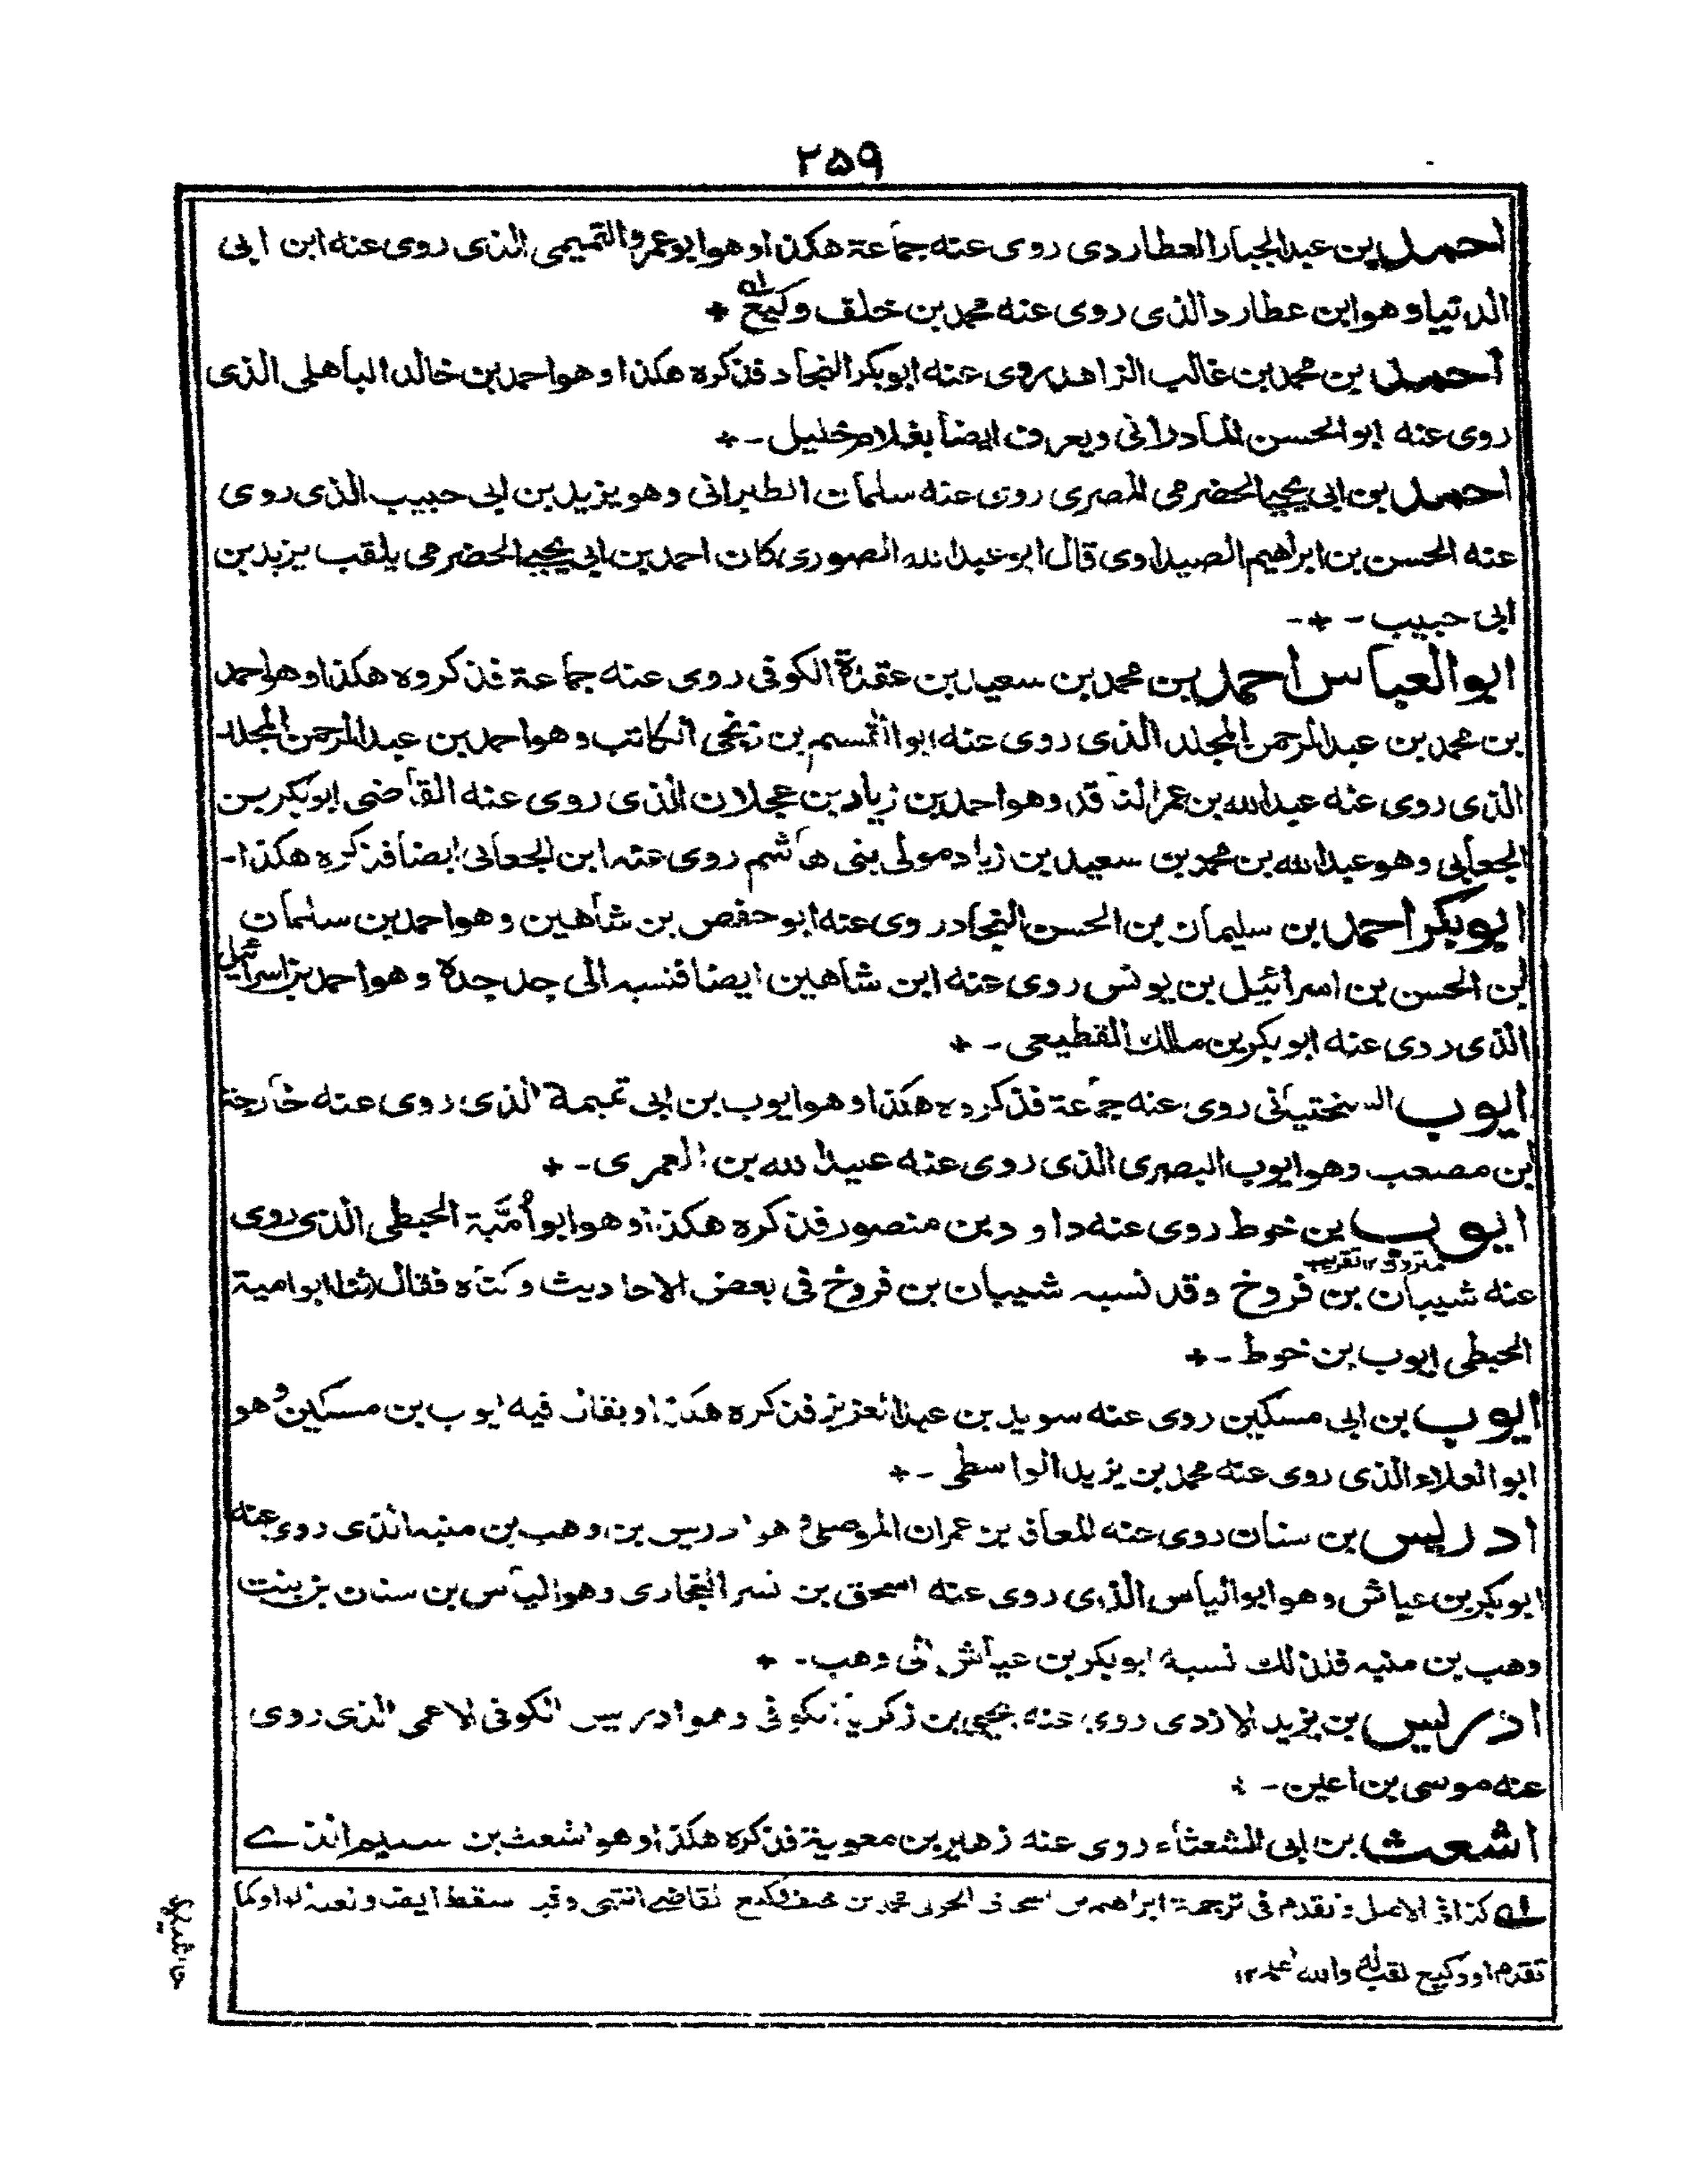 ۲۵۹
احمد بن عبدالجبار العطاردی روی عنه جماعة هكذا وهو ابو عمر والتميمی الذی روی عنه ابن ابی
الدنيا وهو ابن عطارد الذی روی عنه محمد بن خلف وكيع له +
احمد بن محمد بن غالب الزاهد روی عنه ابوبكر النجاد فذكره هكذا وهو احمد بن خالد الباهلی الذی
روی عنه ابوالحسن المادرانی ويعرف ايضا بغلام خليل - +
احمد بن ابی يحيی الحضرمی المصری روی عنه سليمان الطبرانی وهو يزيد بن ابی حبيب الذی روی
عنه الحسن بن ابراهيم الصيداوی قال ابو عبدالله الصوری كان احمد بن ابی يحيی الحضرمی يلقب يزيد بن
ابی حبيب - + -
ابوالعباس احمد بن محمد بن سعيد بن عقدة الكوفی روی عنه جماعة فذكروه هكذا وهو احمد
بن محمد بن عبدالرحمن المجلد الذی روی عنه ابوالقسم بن زنجی الكاتب وهو احمد بن عبدالرحمن المجلد
الذی روی عنه عبدالله بن عمر الناقد وهو احمد بن زياد بن عجلان الذی روی عنه القاضی ابوبكر بن
الجعابی وهو عبدالله بن محمد بن سعيد بن زياد مولی بنی هاشم روی عنه ابن الجعابی ايضا فذكره هكذا -
ابوبكر احمد بن سليمان بن الحسن النجاد روی عنه ابو حفص بن شاهين وهو احمد بن سلمان
بن الحسن بن اسرائيل بن يونس روی عنه ابن شاهين ايضا فنسبه الی جد جده وهو احمد بن اسرائيل
الذی روی عنه ابوبكر بن ملك القطيعی - +
ايوب السختيانی روی عنه جماعة فذكروه هكذا وهو ايوب بن ابی تميمة الذی روی عنه خارجة
ابن مصعب وهو ايوب البصری الذی روی عنه عبيدالله بن العمری - +
ايوب بن خوط روی عنه داود بن منصور فذكره هكذا وهو ابو اُمَيّة الحبطی الذی روی
متروك ۱۲ تقريب
عنه شيبان بن فروخ وقد نسبه شيبان بن فروخ فی بعض الاحاديث وكناه فقال نا ابو امية
الحبطی ايوب بن خوط - +
ايوب بن ابی مسكين روی عنه سويد بن عبدالعزيز فذكره هكذا ويقال فيه ايوب بن مسكين وهو
ابوالعلاء الذی روی عنه محمد بن يزيد الواسطی - +
ادريس بن سنان روی عنه المعافی بن عمران الموصلی وهو ادريس بن وهب بن منبه الذی روی عنه
ابوبكر بن عياش وهو ابو الياس الذی روی عنه اسحق بن نسر البخاری وهو الياس بن سنان بن بنت
وهب بن منبه فلذلك نسبه ابوبكر بن عياش الی وهب - +
ادريس بن يزيد الازدی روی عنه يحيی بن زكريا الكوفی وهو ادريس الكوفی الاعمی الذی روی
عنه موسی بن اعين - +
اشعث بن ابی الشعثاء روی عنه زهير بن معوية فذكره هكذا وهو اشعث بن سليم الذے
له كذا فی الاصل و تقدم فی ترجمة ابراهيم بن اسحق الحربی محمد بن خلف وكيع القاضے انتهی وقد سقط ايضا و لعله اوكما
تقدم او وكيع لقب له والله اعلم ۱۲
حاشيه